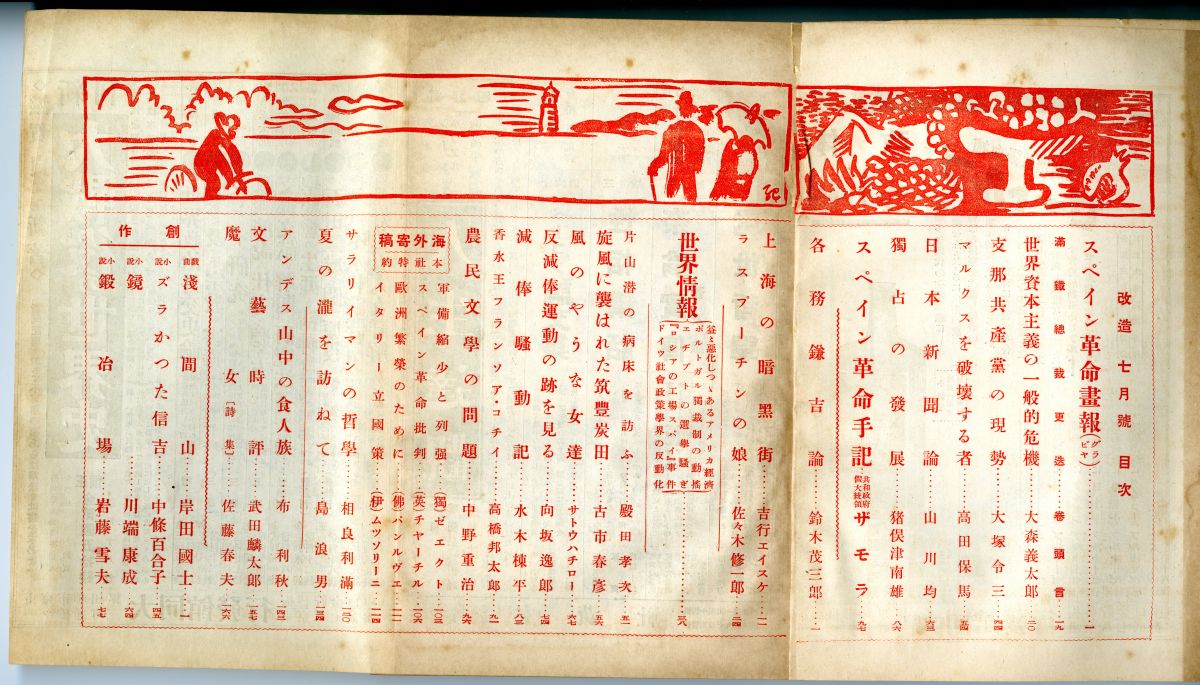 改造 七月號 目次
スペイン革命畫報(グラビヤ)……一
滿鐵總裁更迭 卷頭言……一九
世界資本主義の一般的危機……大森義太郎……二〇
支那共產黨の現勢……大塚令三……四四
マルクスを破壞する者……高田保馬……五四
日本新聞論……山川均……六三
獨占の發展……猪俣津南雄……八六
スペイン革命手記 共和政府假大統領 ザモラ……九七
各務鎌吉論……鈴木茂三郎……一
上海の暗黑街……吉行エイスケ……一一
ラスプーチンの娘……佐々木修一郎……二四
世界情報
益々惡化しつゝあるアメリカ經濟
ポルトガル獨裁制の動搖
エヂプトの選擧騷ぎ
『ロシアの工場スパイ』事件
ドイツ社會政策學界の反動化
……三八
片山潛の病床を訪ふ……殿田孝次……五一
旋風に襲はれた筑豐炭田……古市春彥……五六
風のやうな女達……サトウハチロー……六七
反減俸運動の跡を見る……向坂逸郎……七四
減俸騷動記……水木棟平……八三
香水王フランソア・コチイ……高橋邦太郎……九一
農民文學の問題……中野重治……九六
海外寄稿
本社特約
軍備縮少と列强……(獨)ゼエクト……一〇三
スペイン革命批判……(英)チヤーチル……一〇六
歐洲繁榮のために……(佛)パンルヴエ……一一一
イタリー立國策……(伊)ムツソリーニ……一一四
サラリイマンの哲學……相良利滿……一二〇
夏の瀧を訪ねて……島浪男……一三四
アンデス山中の食人族……布利秋……一四三
文藝時評……武田麟太郎……一五七
魔女[詩集]……佐藤春夫……一六六
創作
戲曲 淺間山……岸田國士……一
小說 ズラかつた信吉……中條百合子……四五
小說 鏡……川端康成……六四
小說 鍛冶場……岩藤雪夫……七七